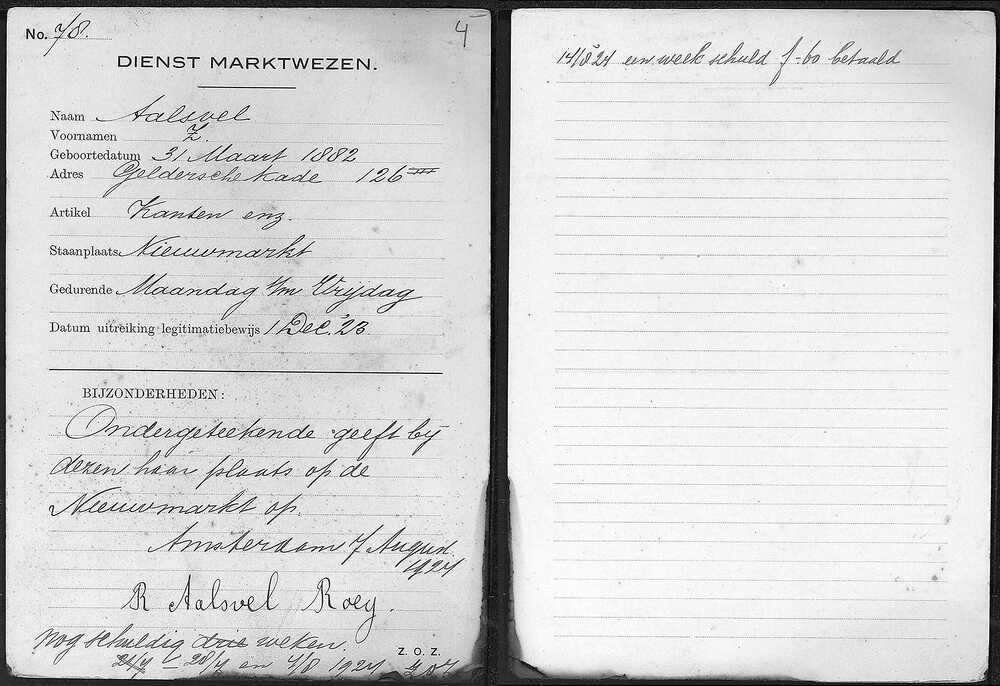 No. 78.
4
DIENST MARKTWEZEN.
Naam Aalsvel
Voornamen Z.
Geboortedatum 31 Maart 1882
Adres Geldersche Kade 126 III
Artikel Kanten enz.
Staanplaats Nieuwmarkt
Gedurende Maandag t/m Vrijdag
Datum uitreiking legitimatiebewijs 1 Dec. '23
BIJZONDERHEDEN:
Ondergeteekende geeft bij
dezen haar plaats op de
Nieuwmarkt op.
Amsterdam 7 August.
1924
R Aalsvel Roey.
nog schuldig drie weken.
21/7 28/7 en 4/8 1924
Z. O. Z.
14/8 '24 een week schuld f -60 betaald